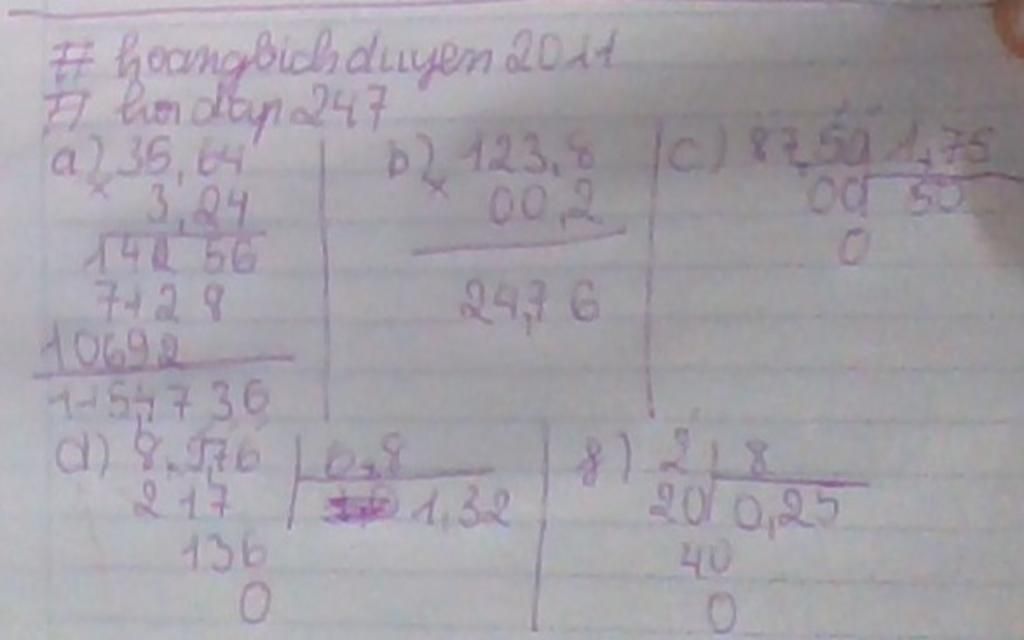 # hoangbichduyen2011
# hoidap247
a) 35,64
× 3,24
142 56
712 8
10692
115,4736
b) 123,8
× 00,2
24,76
c) 87,50 1,75
000 50
0
d) 8,976 6,8
217 1,32
136
0
g) 2 8
20 0,25
40
0